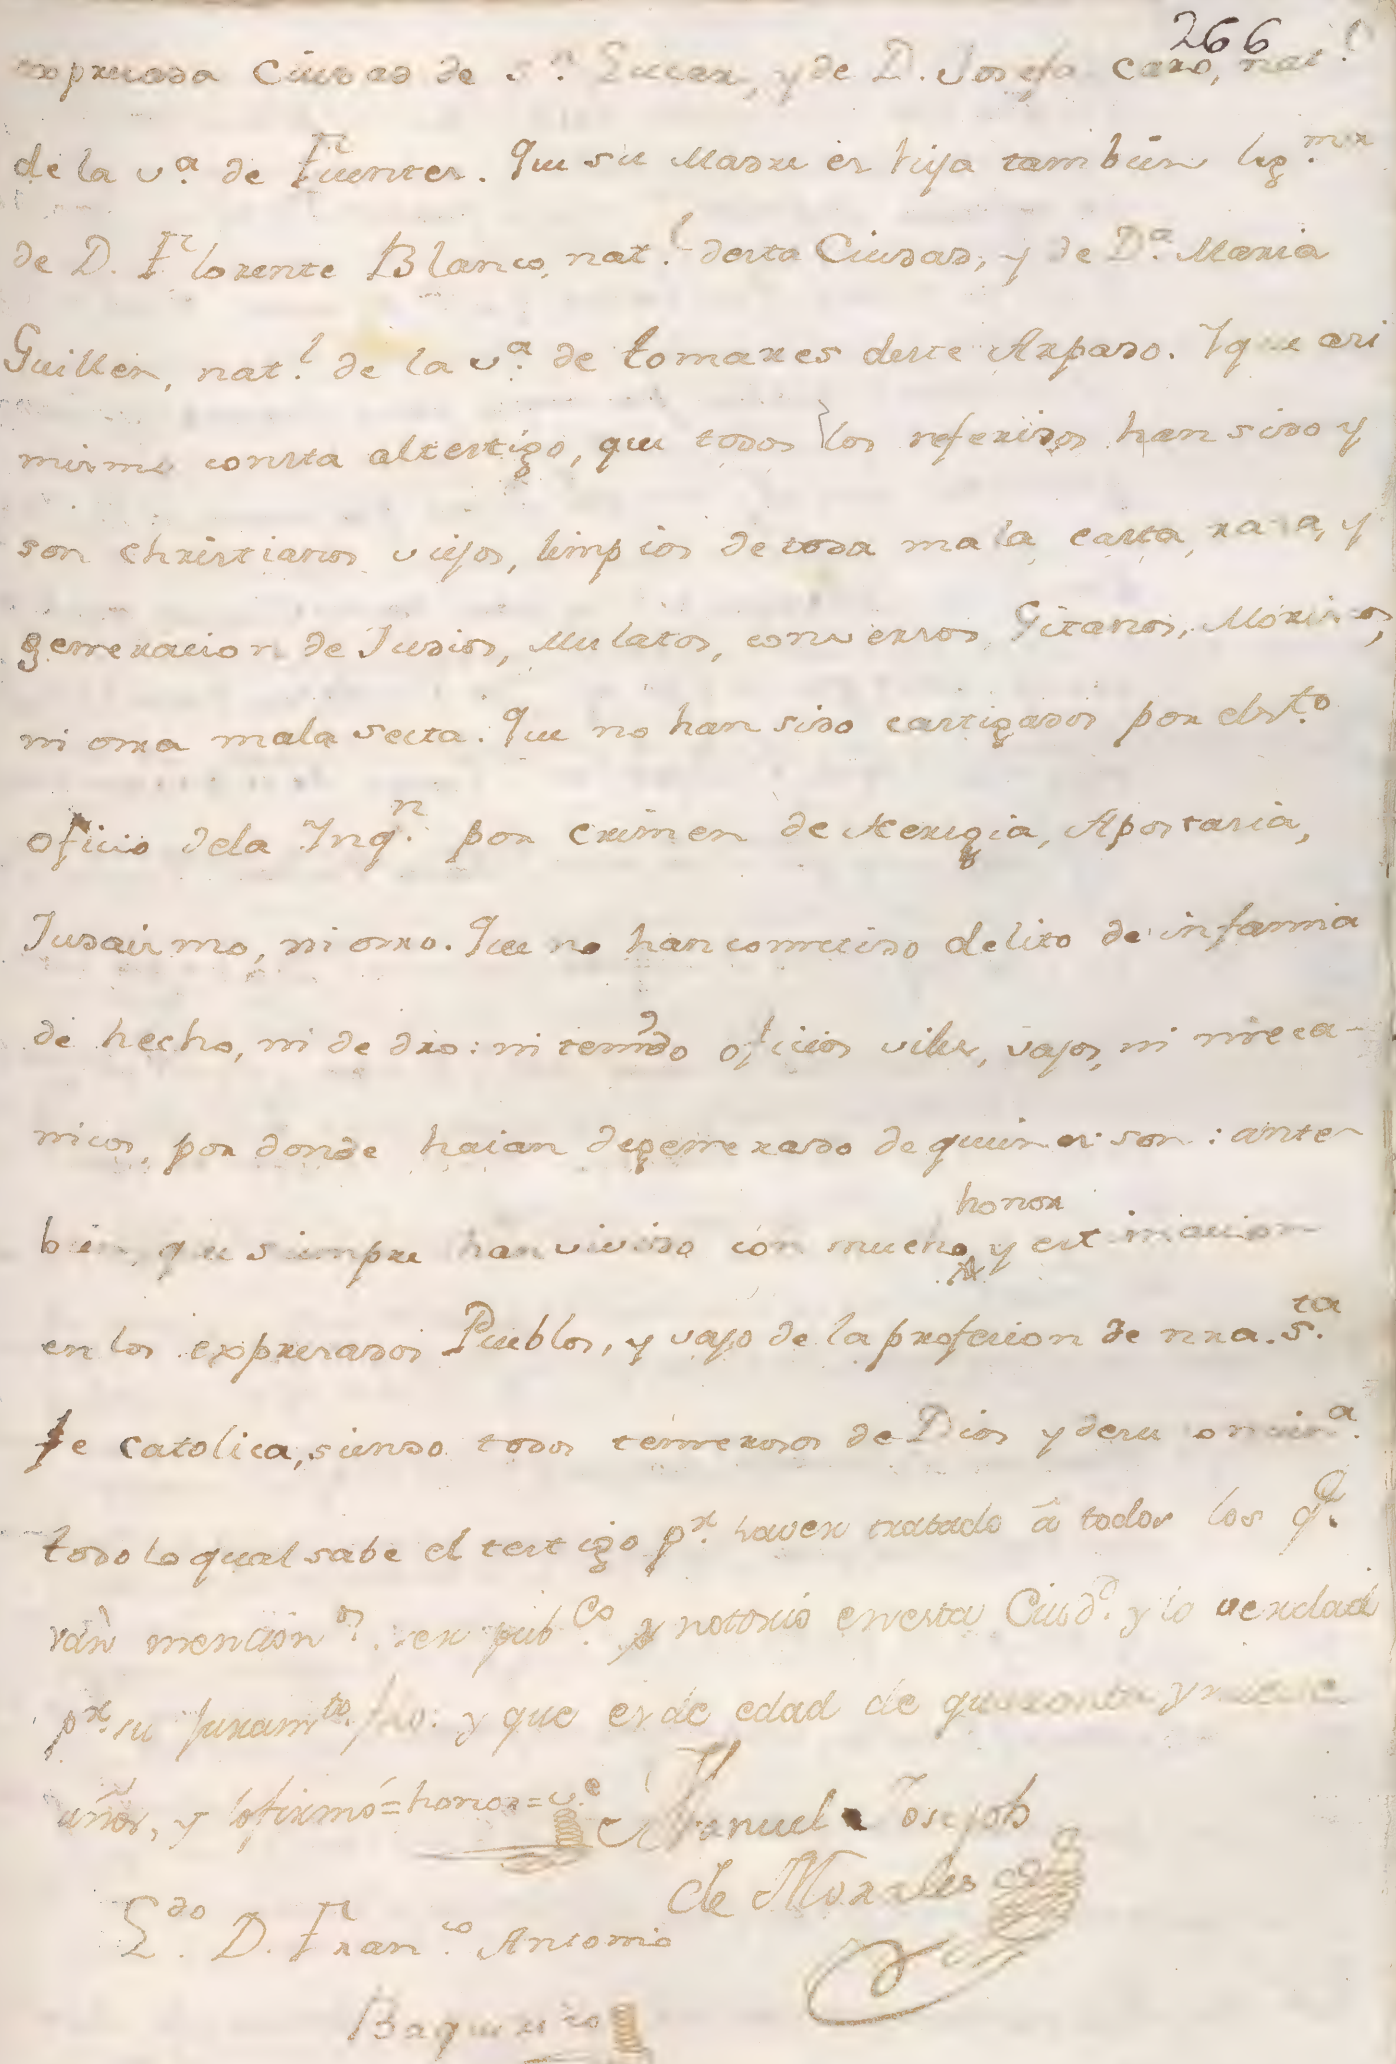 266
expresada Ciudad de S.n Lucar, y de D. Josefa Caro, nat.l
de la v.a de Fuentes. Que su Madre es hija tambien leg.ma
de D. Florente Blanco, nat.l desta Ciudad, y de D.a Maria
Guillen, nat.l de la v.a de tomares deste Arpado. Y que asi
mismo consta al testigo, que todos los referidos han sido y
son christianos viejos, limpios de toda mala casta, rasa, y
generacion de Judios, Mulatos, conversos Gitanos, Moriscos,
ni otra mala secta. Que no han sido castigados por el st.o
oficio dela Inq.n por crimen de Heregia, Apostasia,
Judaismo, ni otro. Que no han cometido delito de infamia
de hecho, ni de dro: ni tenido oficios viles, vajos, ni meca-
nicos, por donde haian degenerado de quienes son: antes
bien, que siempre han vivido con mucho honor y estimacion
en los expresados Pueblos, y vajo de la profesion de nra. S.ta
fe catolica, siendo todos temerosos de Dios y desu concien.a
todo lo qual sabe el testigo p.r haver tratado â todos los q.e
van mencion.os, ser pub.co y notorio en esta Ciud.d y lo verdad
p.r su juram.to fho: y que es de edad de quarenta y nueve
años, y lo firmó = honor = v.e
Manuel Joseph
de Morales
L.do D. Fran.co Antonio
Baquerizo